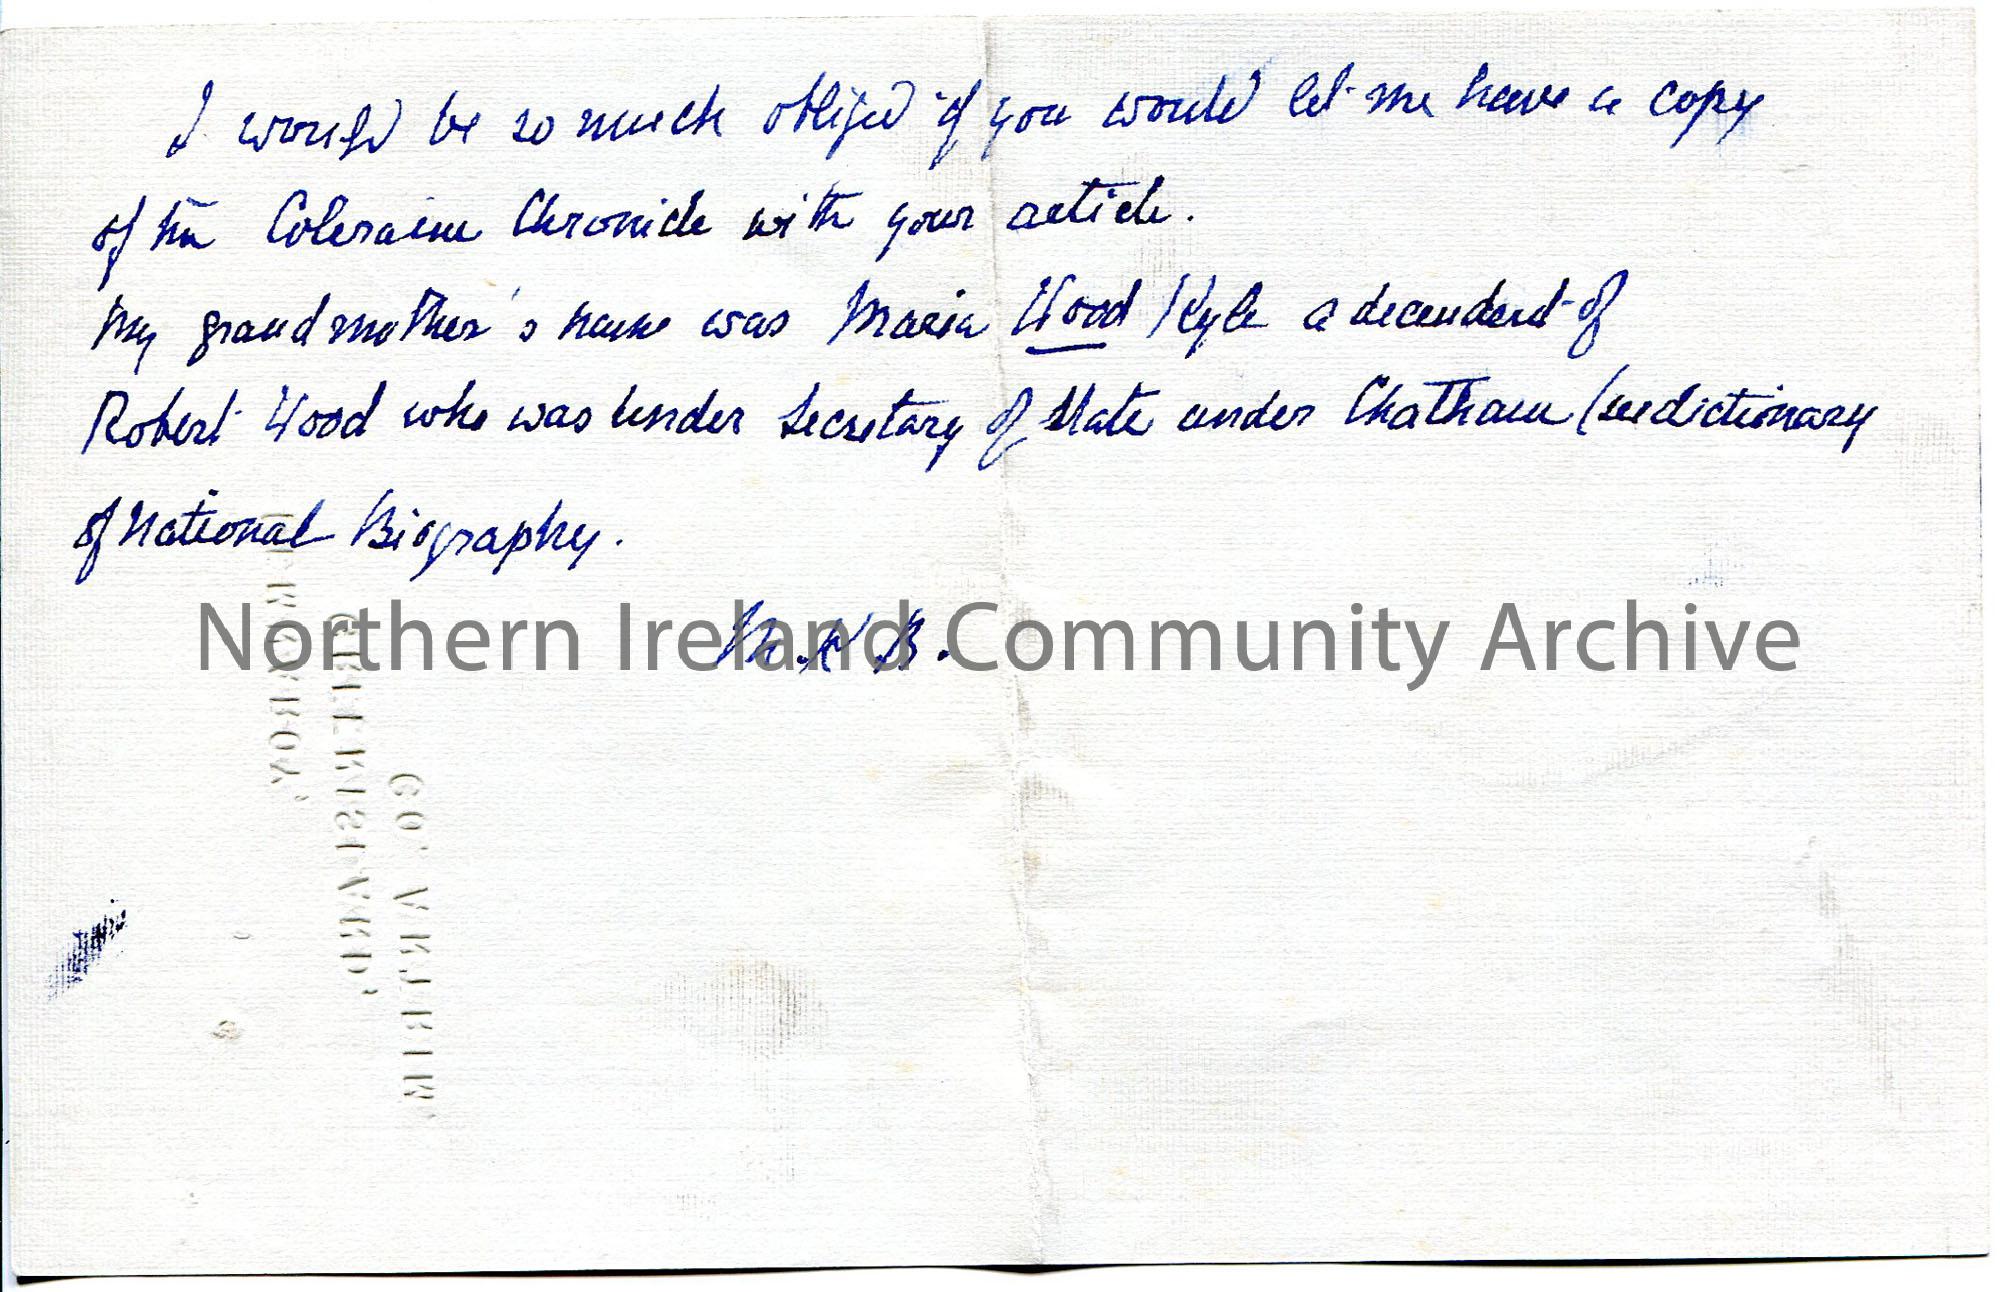 I would be so much obliged if you would let me have a copy
of the Coleraine Chronicle with your article.
My grandmother's name was Maria Wood Kyle a decendent of
Robert Wood who was Under Secretary of State under Chatham (see dictionary
of National Biography.
M.K.B.
Northern Ireland Community Archive
CO. ANTRIM